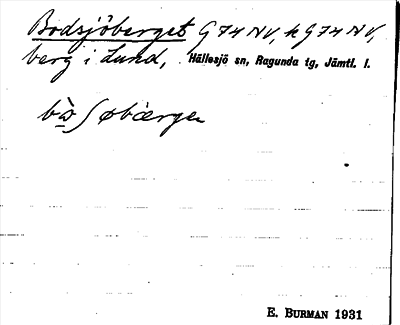 Bodsjöberget G74NV, k G74NV,
berg i Lund, Hällesjö sn, Ragunda tg, Jämtl. l.
E. BURMAN 1931